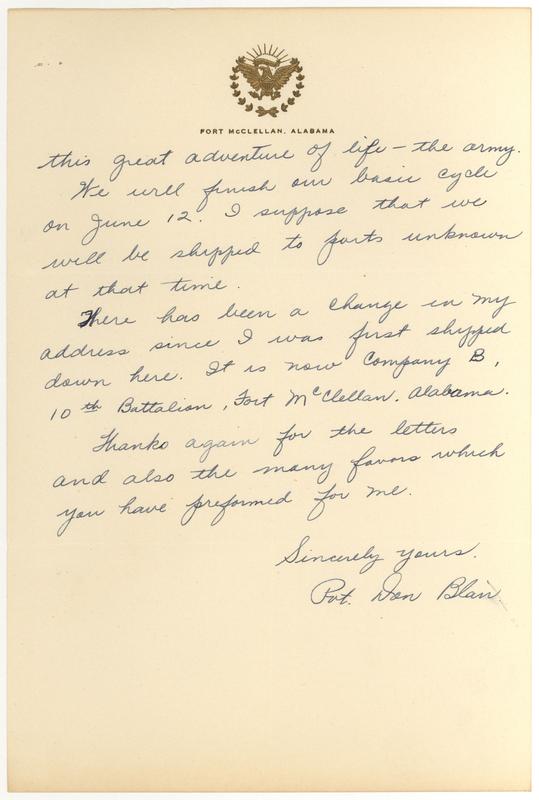 FORT McCLELLAN, ALABAMA
this great adventure of life – the army.
We will finish our basic cycle
on June 12. I suppose that we
will be shipped to parts unknown
at that time.
There has been a change in my
address since I was first shipped
down here. It is now Company B,
10th Battalion, Fort McClellan, Alabama.
Thanks again for the letters
and also the many favors which
you have preformed for me.
Sincerely yours.
Pvt. Don Blair.